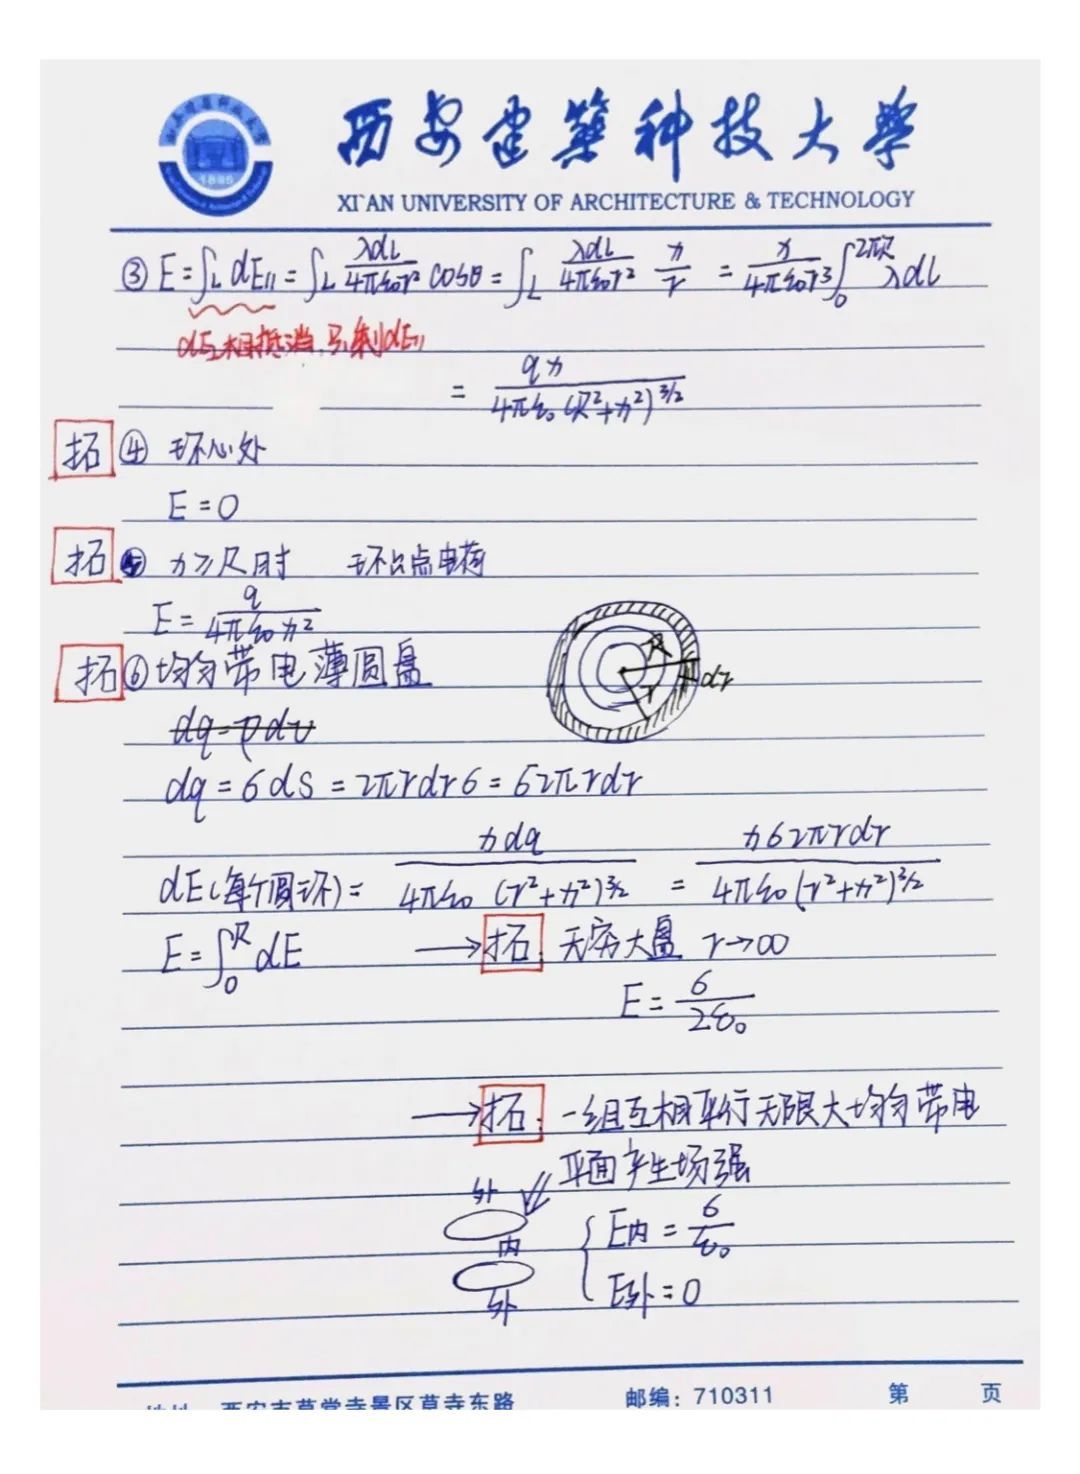 西安建筑科技大学
XI'AN UNIVERSITY OF ARCHITECTURE & TECHNOLOGY
③ E = ∫L dE// = ∫L λdl/4πε₀r² cosθ = ∫L λdl/4πε₀r² x/r = x/4πε₀r³ ∫₀^2πR λdl
dE⊥相抵消,只剩dE//
= qx/4πε₀(R²+x²)^3/2
拓 ④ 环心处
E = 0
拓 ⑤ x≫R时 环≌点电荷
E = q/4πε₀x²
拓 ⑥ 均匀带电薄圆盘
R
r
dr
dq=ρdv
dq = σds = 2πrdrσ = σ2πrdr
dE(每个圆环) = xdq/4πε₀(r²+x²)^3/2 = xσ2πrdr/4πε₀(r²+x²)^3/2
E = ∫₀^R dE → 拓: 无穷大盘 r→∞
E = σ/2ε₀
→ 拓: 一组互相平行无限大均匀带电
平面产生场强
外
内
外
E内 = σ/ε₀
E外 = 0
西安市草堂寺景区草寺东路 邮编：710311 第 页